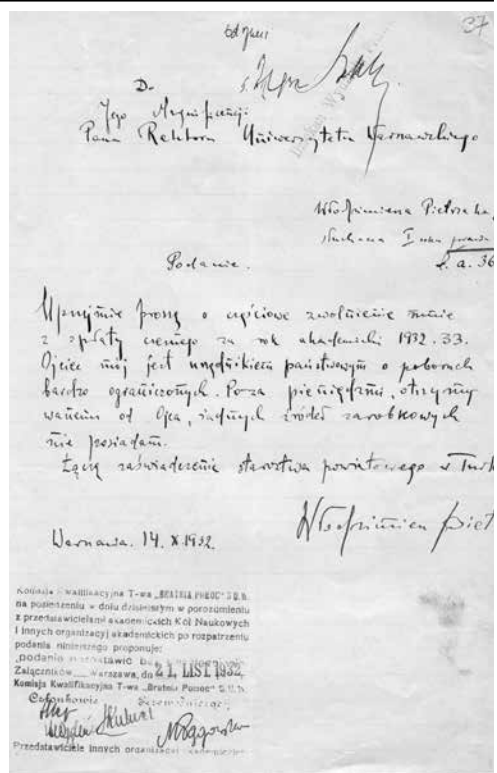 37
Do
Jego Magnificencji
Pana Rektora Uniwersytetu Warszawskiego
Włodzimierza Pietrzaka
słuchacza I roku prawa
L. a. 36
Podanie.
Uprzejmie proszę o częściowe zwolnienie mnie
z opłaty czesnego za rok akademicki 1932.33.
Ojciec mój jest urzędnikiem państwowym o poborach
bardzo ograniczonych. Poza pieniędzmi, otrzymy
wanemi od Ojca, żadnych źródeł zarobkowych
nie posiadam.
Łączę zaświadczenie starostwa powiatowego w Turk
Włodzimierz Piet
Warszawa. 14. X 1932.
Komisja Kwalifikacyjna T-wa „BRATNIA POMOC" S.U.W.
na posiedzeniu w dniu dzisiejszym w porozumieniu
z przedstawicielami akademickich Kół Naukowych
i innych organizacyj akademickich po rozpatrzeniu
podania niniejszego proponuje:
„podanie pozostawić
Załączników Warszawa, dn. 21. LIST 1932
Komisja Kwalifikacyjna T-wa „Bratnia Pomoc" S.U.W.
Członkowie
Przedstawiciele innych organizacyj akademickich